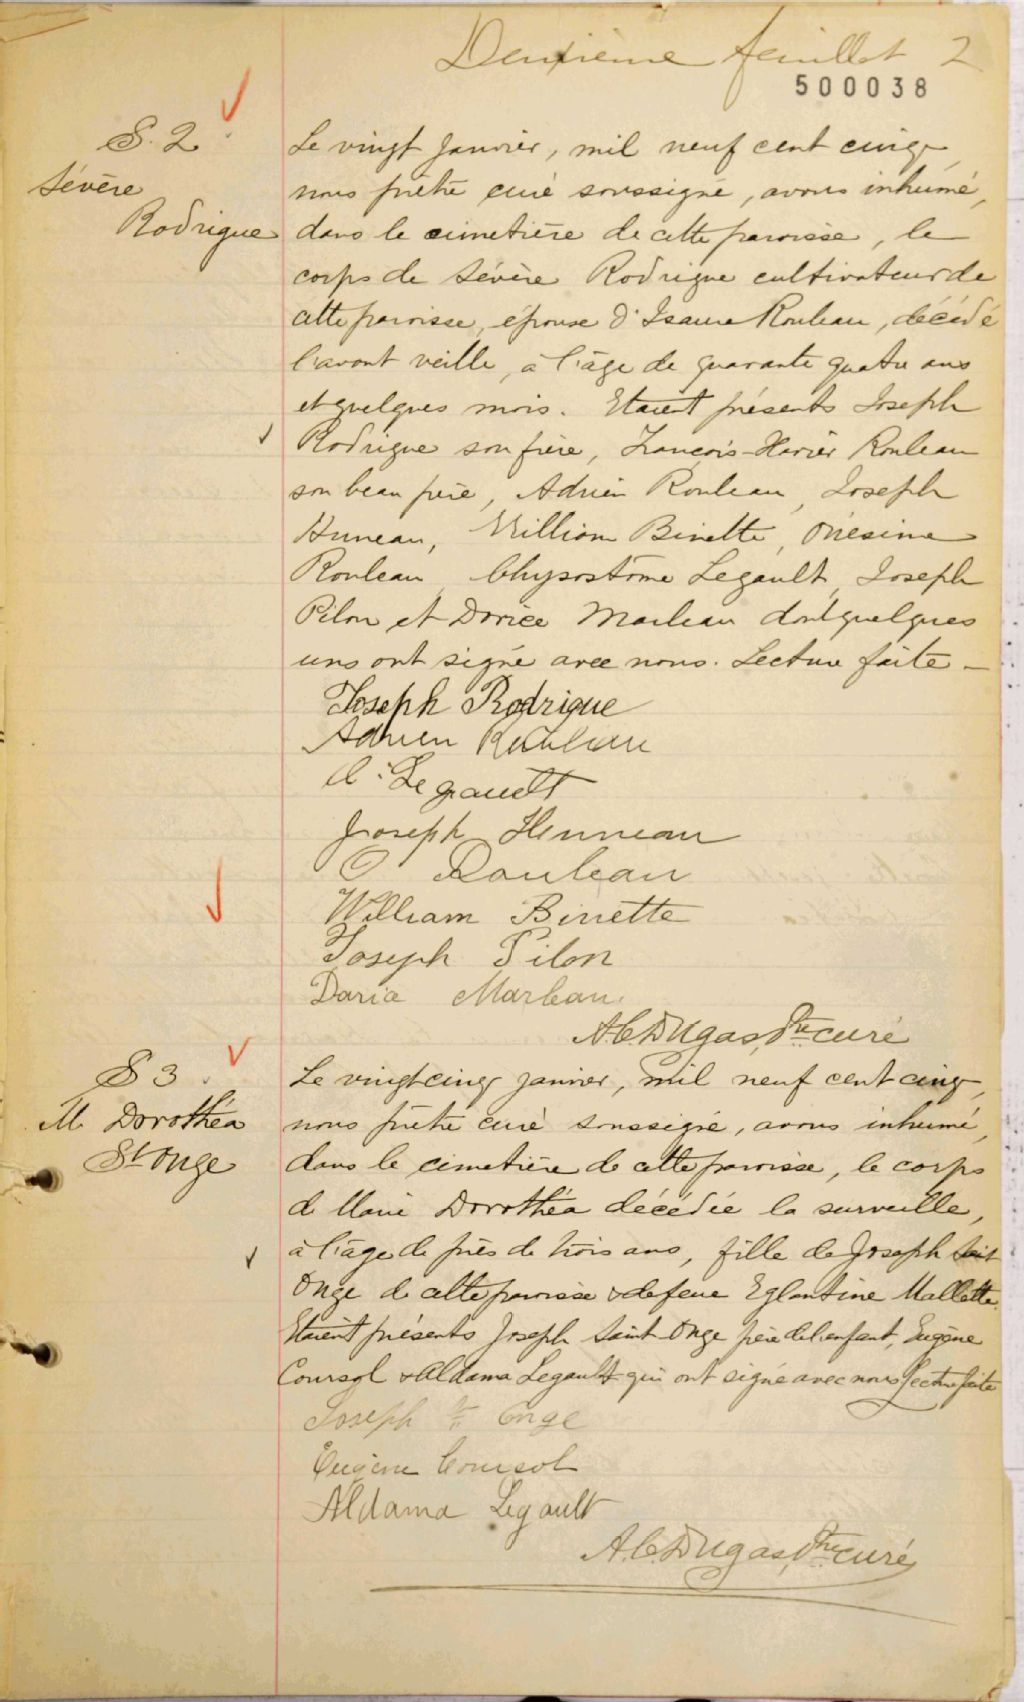 Deuxième feuillet 2
500038
S. 2
Sévère
Rodrigue
Le vingt janvier, mil neuf cent cinq,
nous prêtre curé soussigné, avons inhumé,
dans le cimetière de cette paroisse, le
corps de Sévère Rodrigue cultivateur de
cette paroisse, épouse d'Isaure Rouleau, décédé
l'avant veille, à l'âge de quarante quatre ans
et quelques mois. Etaient présents Joseph
Rodrigue son frère, François-Xavier Rouleau
son beau père, Adrien Rouleau, Joseph
Huneau, William Binette, Onésime
Rouleau, Chysostôme Legault, Joseph
Pilon et Dorice Marleau dont quelques
uns ont signé avec nous. Lecture faite -
Joseph Rodrigue
Adrien Rouleau
C. Legault
Joseph Hunneau
O Rouleau
William Binette
Joseph Pilon
Daria Marleau
A.C. Dugas, Ptre curé
S 3
M. Dorothéa
St Onge
Le vingt cinq janvier, mil neuf cent cinq,
nous prêtre curé soussigné, avons inhumé,
dans le cimetière de cette paroisse, le corps
de Marie Dorothéa décédée la surveille,
à l'âge de près de trois ans, fille de Joseph Saint
Onge de cette paroisse & de feue Eglantine Mallette.
Etaient présents Joseph Saint-Onge père de l'enfant, Eugène
Coursol & Aldama Legault qui ont signé avec nous Lecture faite
Joseph St Onge
Eugène Coursol
Aldama Legault
A.C. Dugas, Ptre curé